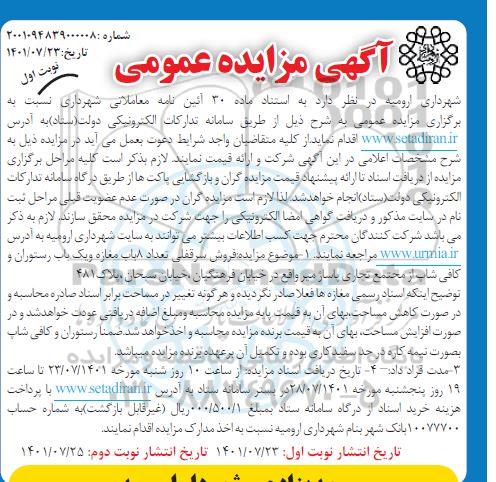 شماره :۲۰۰۱۰۹۴۸۳۹۰۰۰۰۰۸
تاریخ:۱۴۰۱/۰۷/۲۳
نوبت اول
آگهی مزایده عمومی
شهرداری ارومیه در نظر دارد به استناد ماده ۳۰ آئین نامه معاملاتی شهرداری نسبت به
برگزاری مزایده عمومی به شرح ذیل از طریق سامانه تدارکات الکترونیکی دولت(ستاد)به آدرس
www.setadiran.ir اقدام نماید.از کلیه متقاضیان واجد شرایط دعوت بعمل می آید در مزایده ذیل به
شرح مشخصات اعلامی در این آگهی شرکت و ارائه قیمت نمایند. لازم بذکر است کلیه مراحل برگزاری
مزایده از دریافت اسناد تا ارائه پیشنهاد قیمت مزایده گران و بازگشایی پاکت ها از طریق درگاه سامانه تدارکات
الکترونیکی دولت(ستاد)انجام خواهدشد.لذا لازم است مزایده گران در صورت عدم عضویت قبلی مراحل ثبت
نام در سایت مذکور و دریافت گواهی امضا الکترونیکی را جهت شرکت در مزایده محقق سازند. لازم به ذکر
می باشد شرکت کنندگان محترم جهت کسب اطلاعات بیشتر می توانند به سایت شهرداری ارومیه به آدرس
www.urmia.ir مراجعه نمایند. ۱-موضوع مزایده:فروش سرقفلی تعداد ۸باب مغازه ویک باب رستوران و
کافی شاپ از مجتمع تجاری پاساژ میر واقع در خیابان فرهنگیان ،خیابان سبحان،پلاک ۴۸۱
توضیح اینکه اسناد رسمی مغازه ها فعلا صادر نگردیده و هرگونه تغییر در مساحت برابر اسناد صادره محاسبه و
در صورت کاهش مساحت،بهای آن به قیمت پایه مزایده محاسبه ومبلغ اضافه دریافتی عودت خواهدشد و در
صورت افزایش مساحت، بهای آن به قیمت برنده مزایده محاسبه و اخذخواهد شد.ضمناً رستوران و کافی شاپ
بصورت نیمه کاره در حد سفیدکاری بوده و تکمیل آن برعهده برنده مزایده میباشد.
۳-مدت قراد داد:— ۴- تاریخ دریافت اسناد مزایده: از ساعت ۱۰ روز شنبه مورخه ۲۳/۰۷/۱۴۰۱ تا ساعت
۱۹ روز پنجشنبه مورخه ۲۸/۰۷/۱۴۰۱در بستر سامانه ستاد به آدرس www.setadiran.ir با پرداخت
هزینه خرید اسناد از درگاه سامانه ستاد بمبلغ ۰۰۰/۵۰۰/۱ریال (غیرقابل بازگشت)به شماره حساب
۱۰۰۷۷۷۰۰بانک شهر بنام شهرداری ارومیه نسبت به اخذ مدارک مزایده اقدام نمایند.
تاریخ انتشار نوبت اول: ۱۴۰۱/۰۷/۲۳ تاریخ انتشار نوبت دوم: ۱۴۰۱/۰۷/۲۵